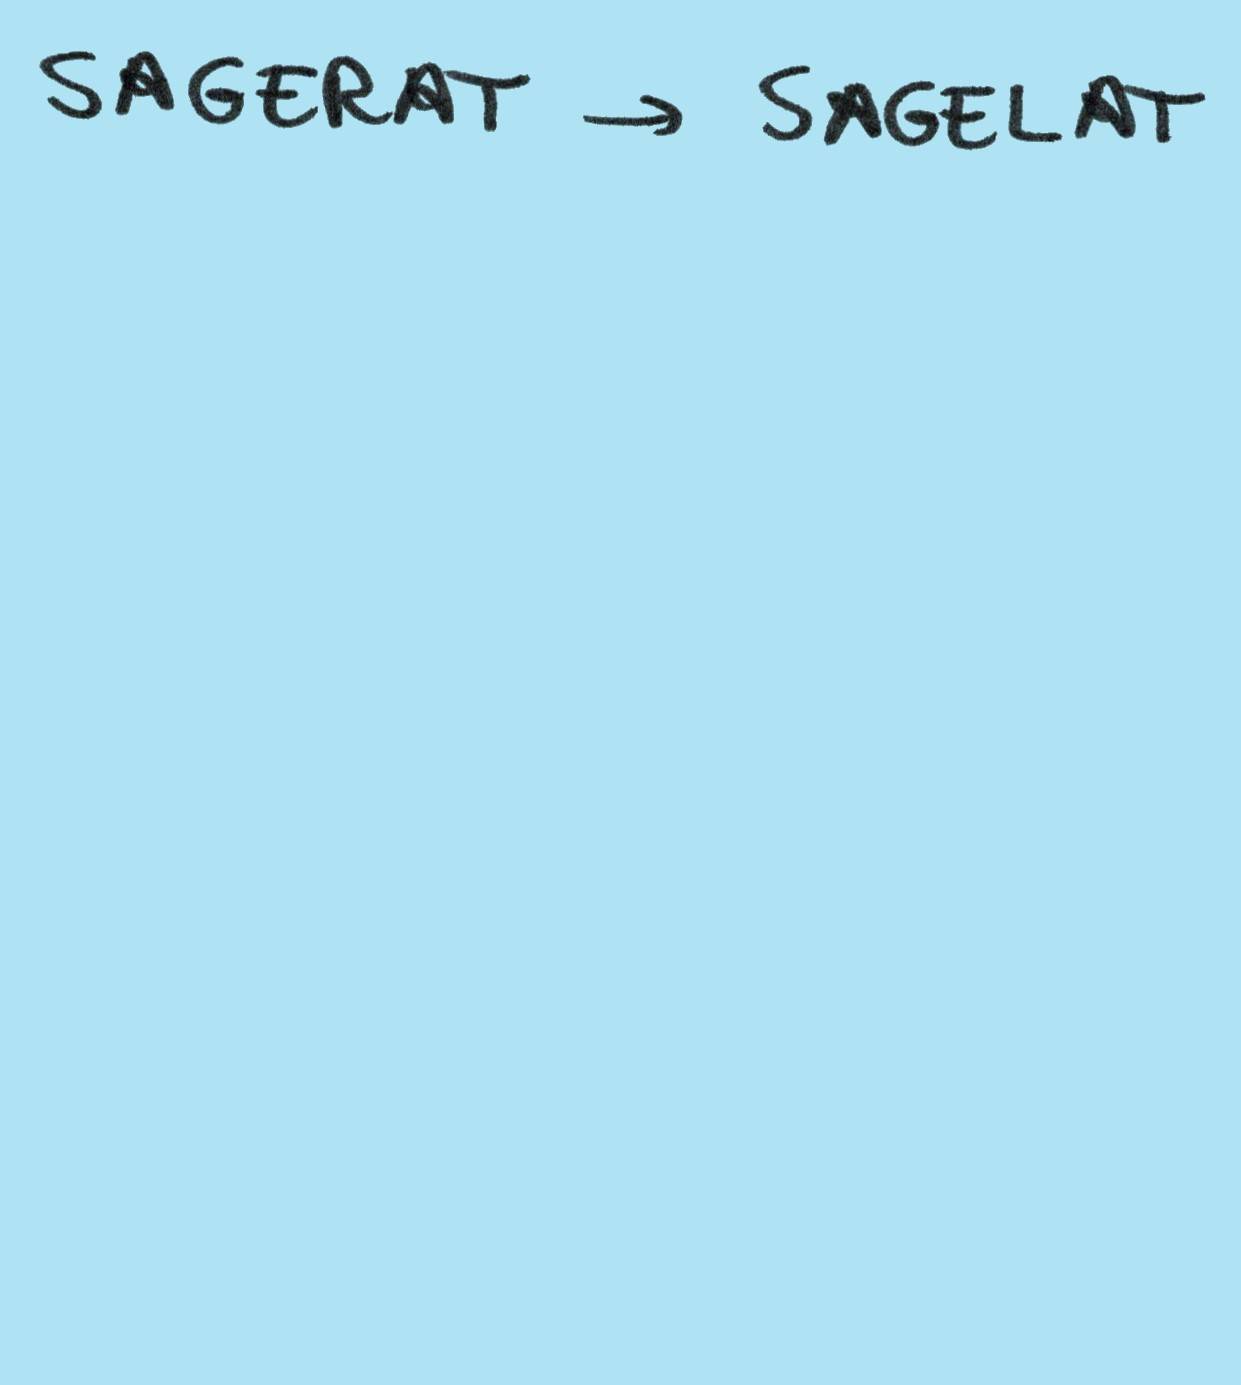 SAGERAT → SAGELAT